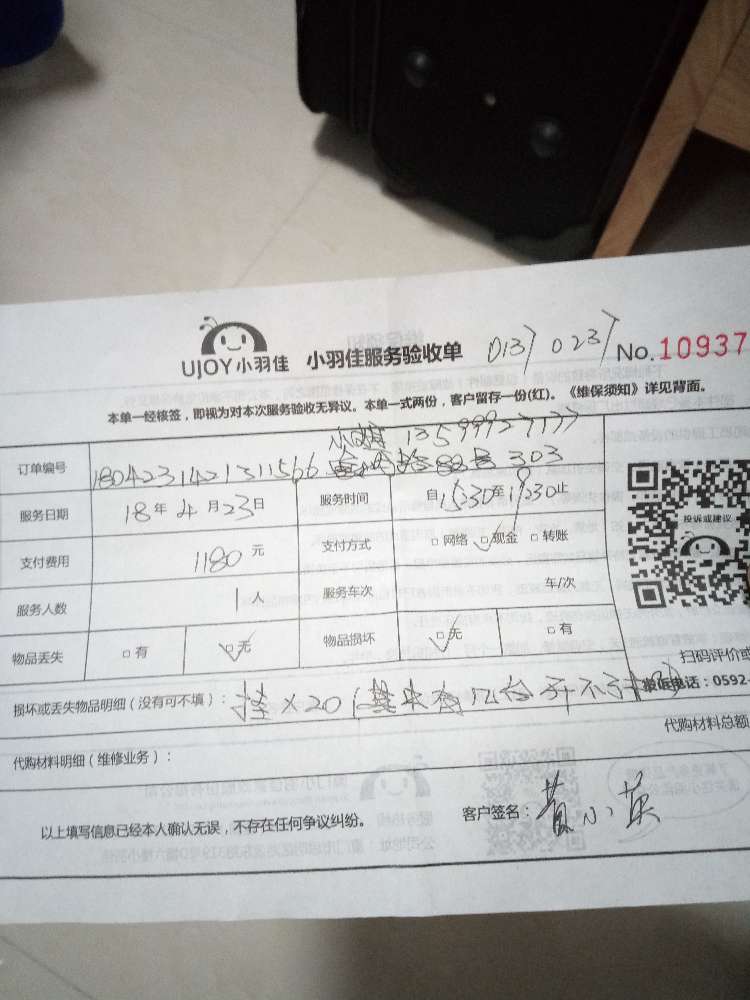 UJOY小羽佳 小羽佳服务验收单 0137 0237 No. 10937
本单一经核签，即视为对本次服务验收无异议。本单一式两份，客户留存一份(红)。《维保须知》详见背面。
13599927177
订单编号 180423142131566 303
服务日期 18年4月23日 服务时间 自1530至19230止
投诉或建议
支付费用 1180元 支付方式 □网络 □现金 □转账
服务人数 1人 服务车次 车/次
物品丢失 □有 □无 物品损坏 □无 □有
扫码评价或
损坏或丢失物品明细（没有可不填）： 挂×20
电话：0592-
代购材料明细（维修业务）： 代购材料总额
以上填写信息已经本人确认无误，不存在任何争议纠纷。 客户签名：黄小英